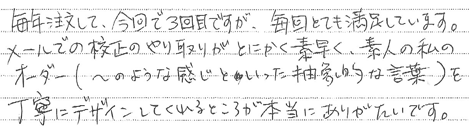 毎年注文して、今回で3回目ですが、毎回とても満足しています。
メールでの校正のやり取りがとにかく素早く、素人の私の
オーダー(〜のような感じといった抽象的な言葉)を
丁寧にデザインしてくれるところが本当にありがたいです。